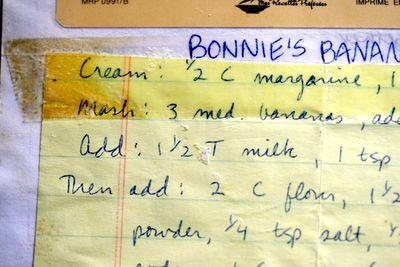 MRP 09917B
Mes Recettes Préférées
IMPRIMÉ E
BONNIE'S BANAN
Cream: 1/2 C margarine, 1
Mash: 3 med. bananas, add
Add: 1 1/2 T milk, 1 tsp
Then add: 2 C flour, 1 1/2
powder, 1/4 tsp salt, 1/2